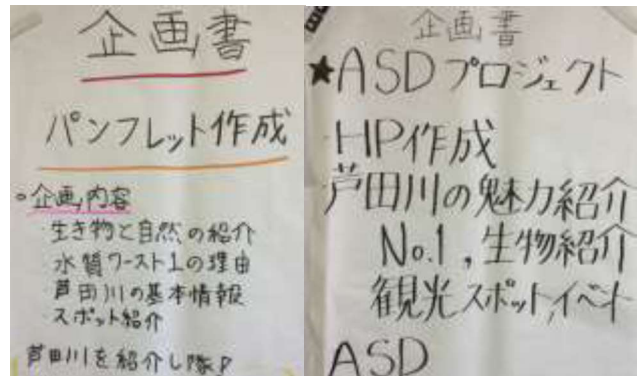 企画書
パンフレット作成
◦企画内容
生き物と自然の紹介
水質ワースト1の理由
芦田川の基本情報
スポット紹介
芦田川を紹介し隊♪
企画書
★ASDプロジェクト
HP作成
芦田川の魅力紹介
No.1,生物紹介
観光スポット,イベント
ASD